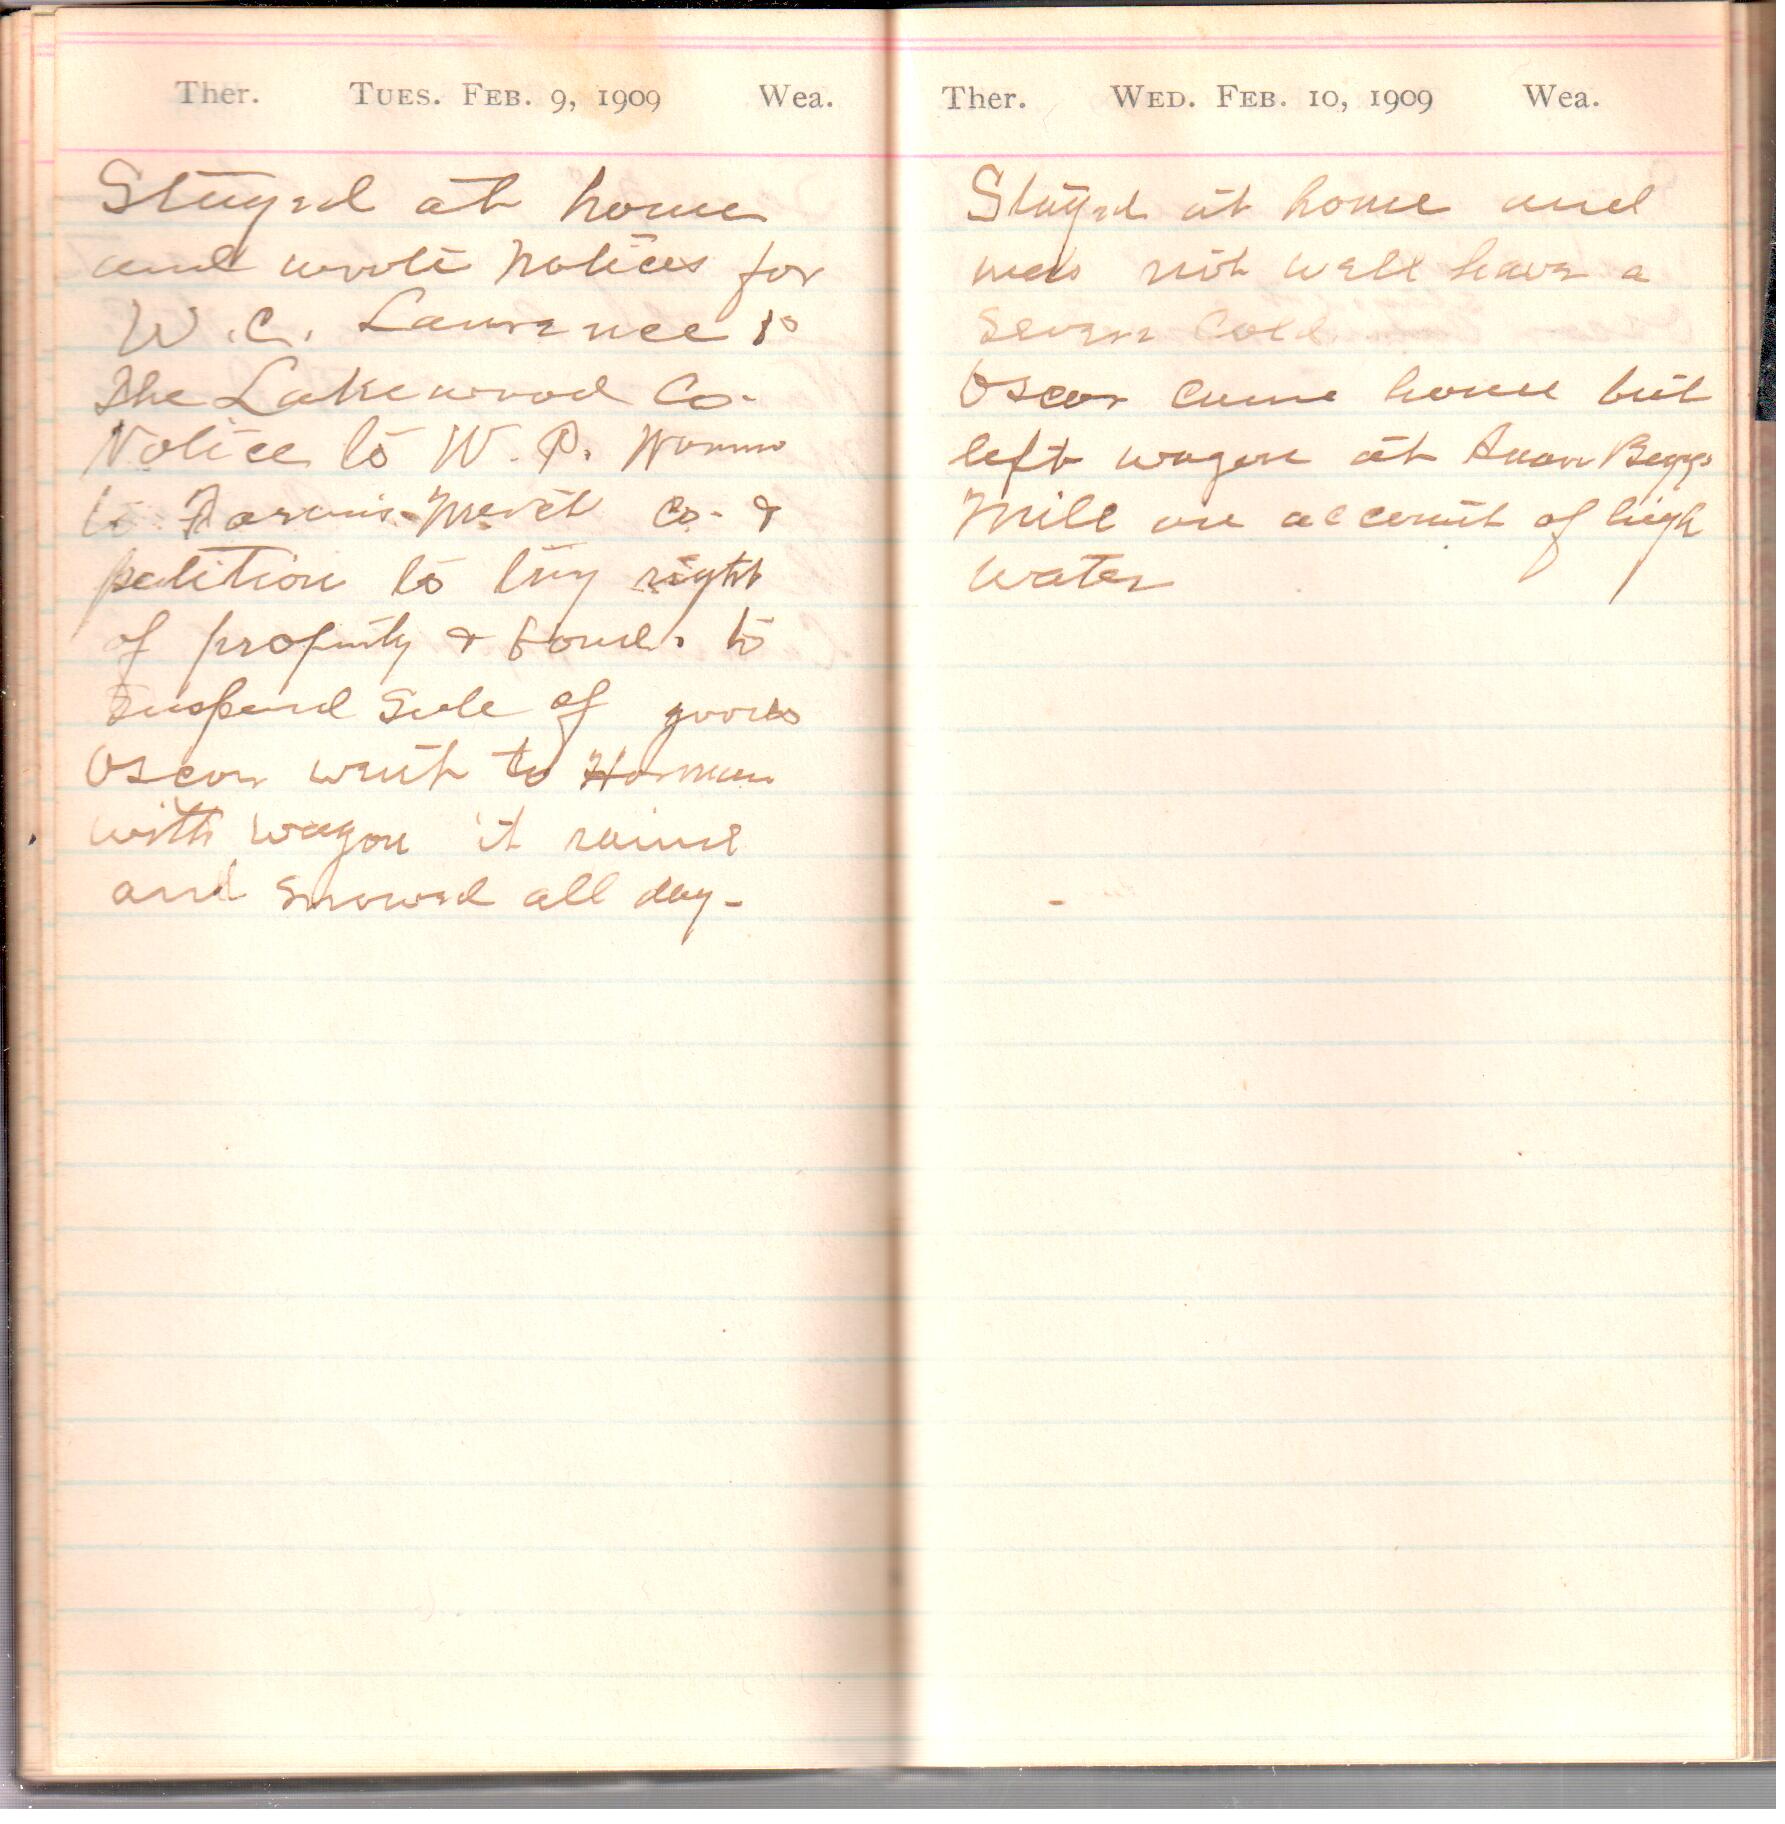 Ther. TUES. FEB. 9, 1909 Wea.
Stayed at home
and wrote notices for
W. C. Lawrence to
The Lakewood Co.
Notice to W. P.
to Farris-Merct Co. &
petition to try right
of property & bond. to
suspend sale of goods
Oscar went to Harman
with wagon it raind
and snowed all day-
Ther. WED. FEB. 10, 1909 Wea.
Stayed at home and
was not well have a
severe cold.
Oscar came home but
left wagon at Beggs
Mill on account of high
water